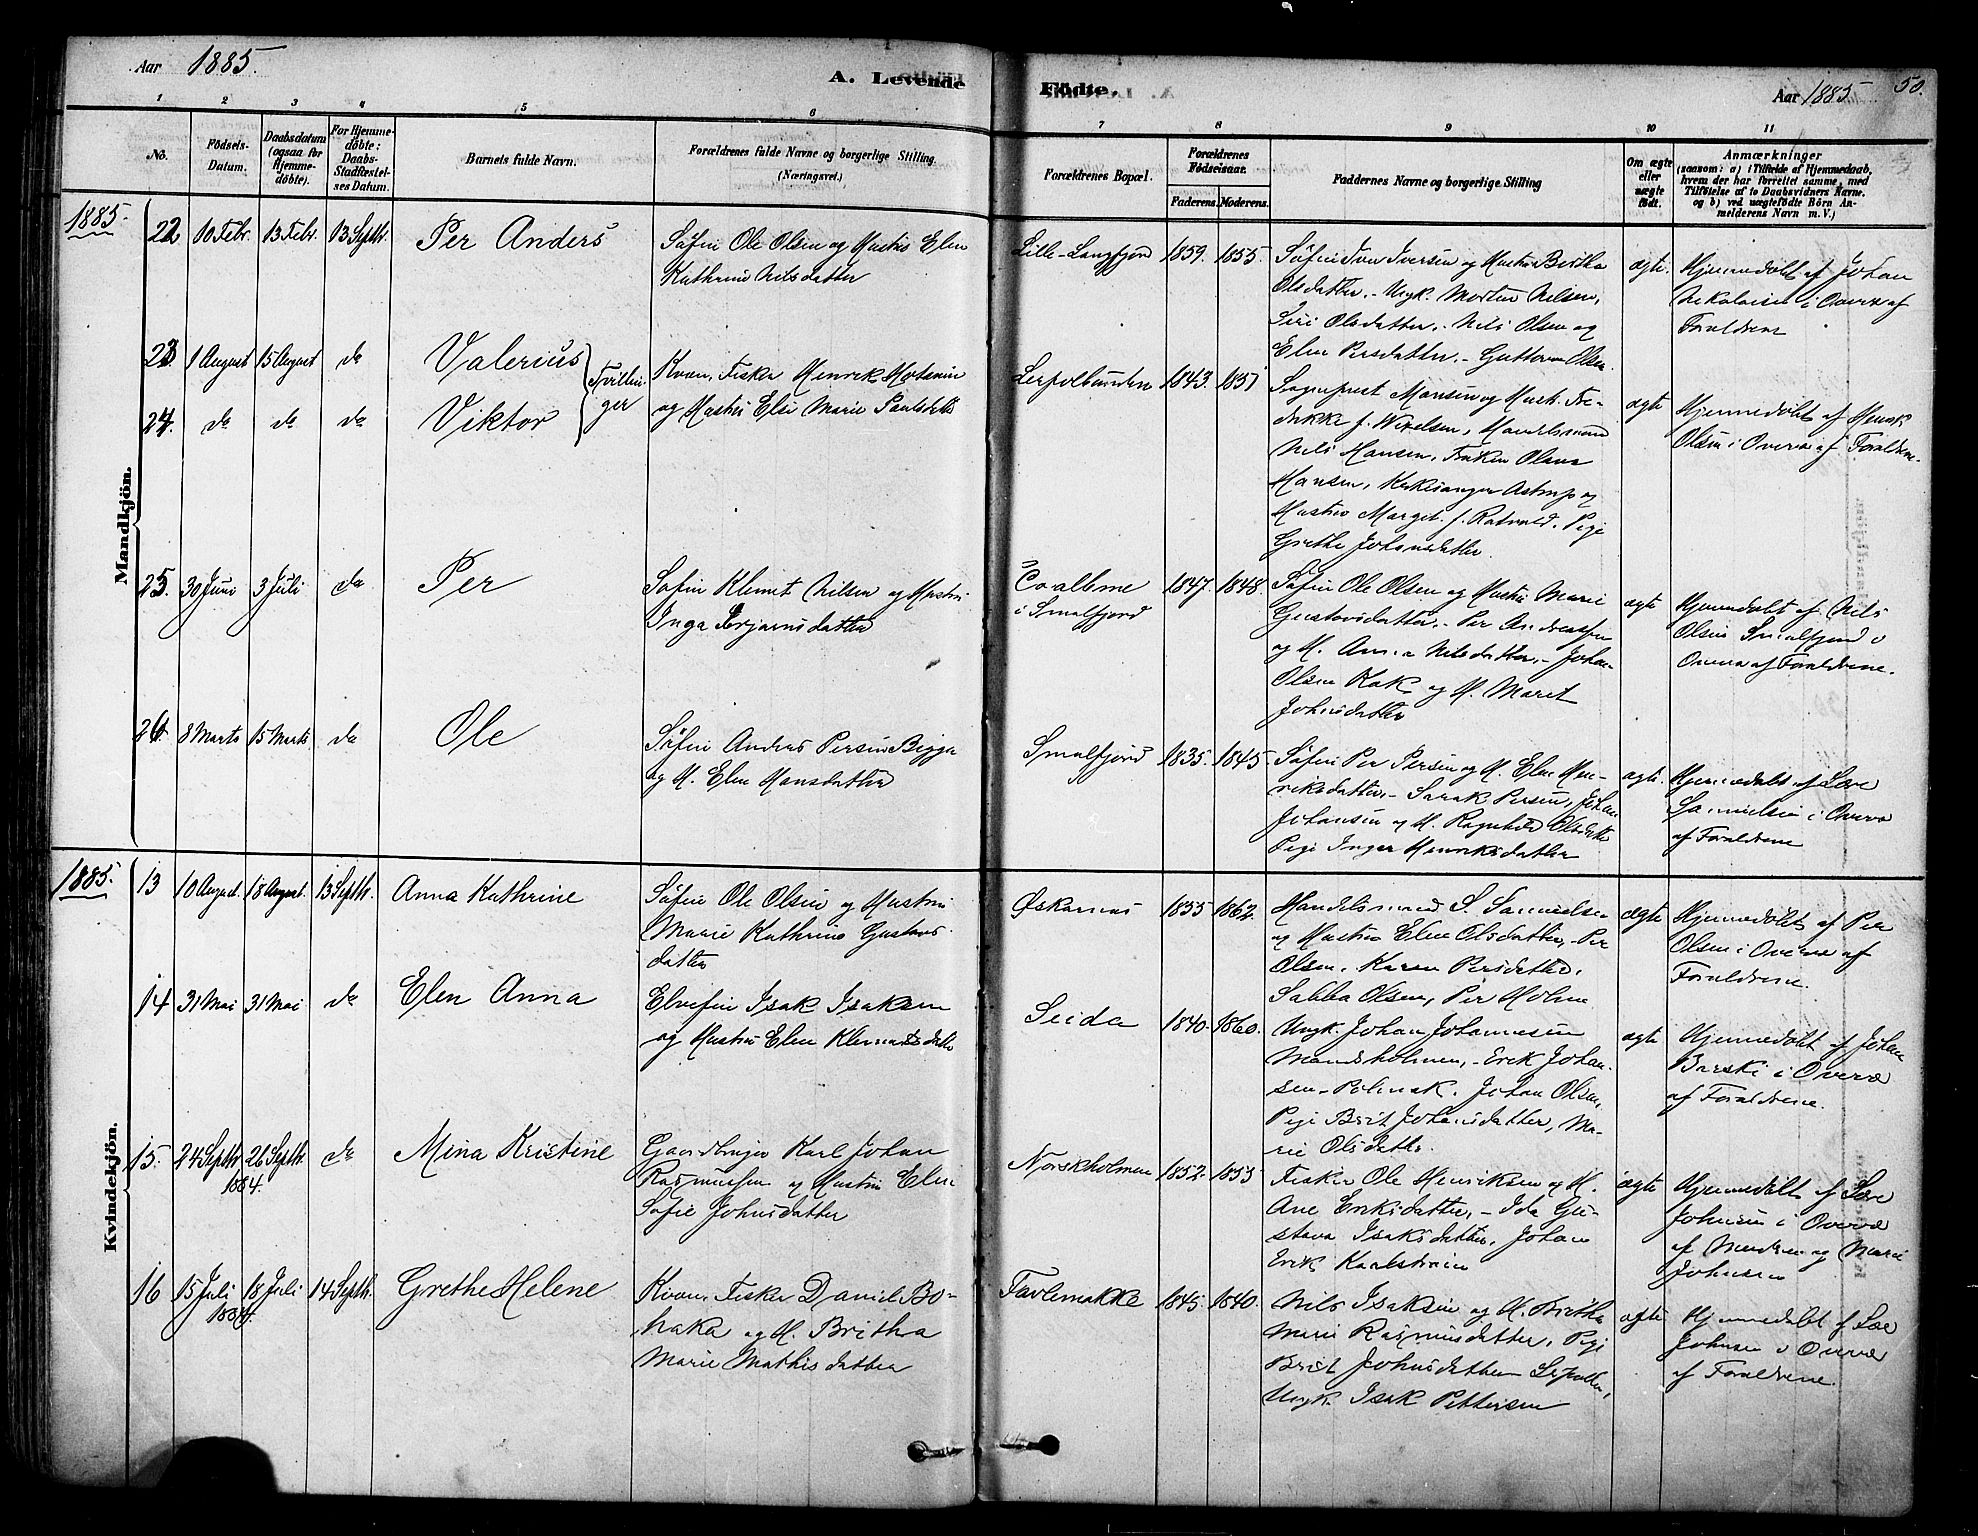 Aar 1885.
A. Levende
Födte.
Aar 1885
50.
1 2 3 4 5 6 7 8 9 10 11
No.
Födsels-
Datum.
Daabsdatum
(ogsaa for
Hjemme-
döbte).
For Hjemme-
döbte:
Daabs-
Stadfæstel-
ses Datum.
Barnets fulde Navn.
Forældrenes fulde Navne og borgerlige Stilling.
(Næringsvei.)
Forældrenes Bopæl.
Forældrenes
Födselsaar.
Faderens. Moderens.
Faddernes Navne og borgerlige Stilling
Om ægte
eller
uægte
födt.
Anmærkninger
(saasom: a) i Tilfælde af Hjemmedaab,
hvem der har forrettet samme, med
Tilföielse af to Daabsvidners Navne.
og b) ved uægtefödte Börn An-
melderens Navn m. V.)
1885.
Mandkjön.
22 10 Febr. 13 Febr. 13 Septbr. Per Anders
Søfin Ole Olsen og Hustru Elen
Kathrine Nilsdatter
Lille-Langfjord 1859. 1855.
Søfin Iver Iversen og Hustru Beritha
Olsdatter. - Ungk. Morten Nilsen,
Siri Olsdatter. - Nils Olsen og
Elen Persdatter. - Guttorm Olsen
ægte.
Hjemmedøbt af Johan
Nikolaisen i Overv. af
Foraldrene
23 1 August 15 August do Valerius
24. do do do Viktor
Tvillin-
ger
Kvæn, Fisker Henrik
og Hustru Elsi Marie
1843. 1851
Mansen og Hust. Fre-
drikke f. Handelsmand
Nils Hansen, Frøken Olava
Hansen, Kirkesanger Astrup og
Hustru Margit f. Pige
Grethe Johansdatter.
ægte
Hjemmedøbt af Henrik
Olsen i Overv. af Foraldrene.
25. 30 Juni 3 Juli do Per
Søfin Klemet Nilsen og Hustru
Inga
i Smalfjord 1847. 1848.
Søfin Ole Olsen og Hustru Marie
Gustavsdatter. - Per Andreassen
og H. Anna Nilsdatter. - Johan
Olsen Kok og H. Maret
Johnsdatter
ægte
Hjemmedøbt af Nils
Olsen Smalfjord i
Overv. af Foraldrene.
26 8 Marts 15 Marts do Ole
Søfin Anders Persen Bigga
og H. Elen Hansdatter
Smalfjord 1835. 1845.
Søfin Per Persen og H. Elen Hen-
riksdatter. - Sarak Persen, Johan
Johansen og H. Ragnhild Olsdatter
Pige Inger Henriksdatter
ægte.
Hjemmedøbt af Lære
Samuelsen i Overv.
af Foraldrene
1885.
Kvindekjön.
13 10 August. 18 August. 13 Septbr. Anna Kathrine
Søfin Ole Olsen og Hustru
Marie Kathrine Gustavs
datter
1855 1862.
Handelsmand S. Samuelsen
og Hustru Elen Olsdatter. - Per
Olsen. Karen Persdatter.
Sabba Olsen, Per Holm
ægte
Hjemmedøbt af Per
Olsen i Overv. af
Foraldrene.
14 31 Mai 31 Mai do Elen Anna
Elvefin Isak Isaksen
og Hustru Elen Klemetsdatter
Seida 1840. 1860.
Ungk. Johan Johannesen
Mandsholmen, - Erik Johan-
sen Polmak. Johan Olsen,
Pige Brit Johansdatter, Ma-
rie Olsdatter.
ægte
Hjemmedøbt af Johan
Barski i Overv.
af Foraldrene.
15. 24 Septbr. 1884. 26 Septbr. do Mina Kristine
Gaardbruger Karl Johan
Rasmussen og Hustru Elen
Sofie Johnsdatter
Norskholmen 1852. 1855
Fisker Ole Henriksen og H.
Ane Eriksdatter. - Ida Gu-
stava Isaksdatter. Johan
Erik Karlstrøm
ægte
Hjemmedøbt af Lære
Johnsen i Overv.
af Moderen og Marie
Johnsen
16 15 Juli 1884. 18 Juli 14 Septbr. Grethe Helene
Kvæn, Fisker Daniel Bo-
naka og H. Britha
Marie Mathisdatter
1845. 1840.
Nils Isaksen og H. Britha
Marie Rasmusdatter. Pige
Brit Johnsdatter
Ungk. Isak Pettersen
ægte
Hjemmedøbt af Lære
Johnsen i Overv.
af Foraldrene.